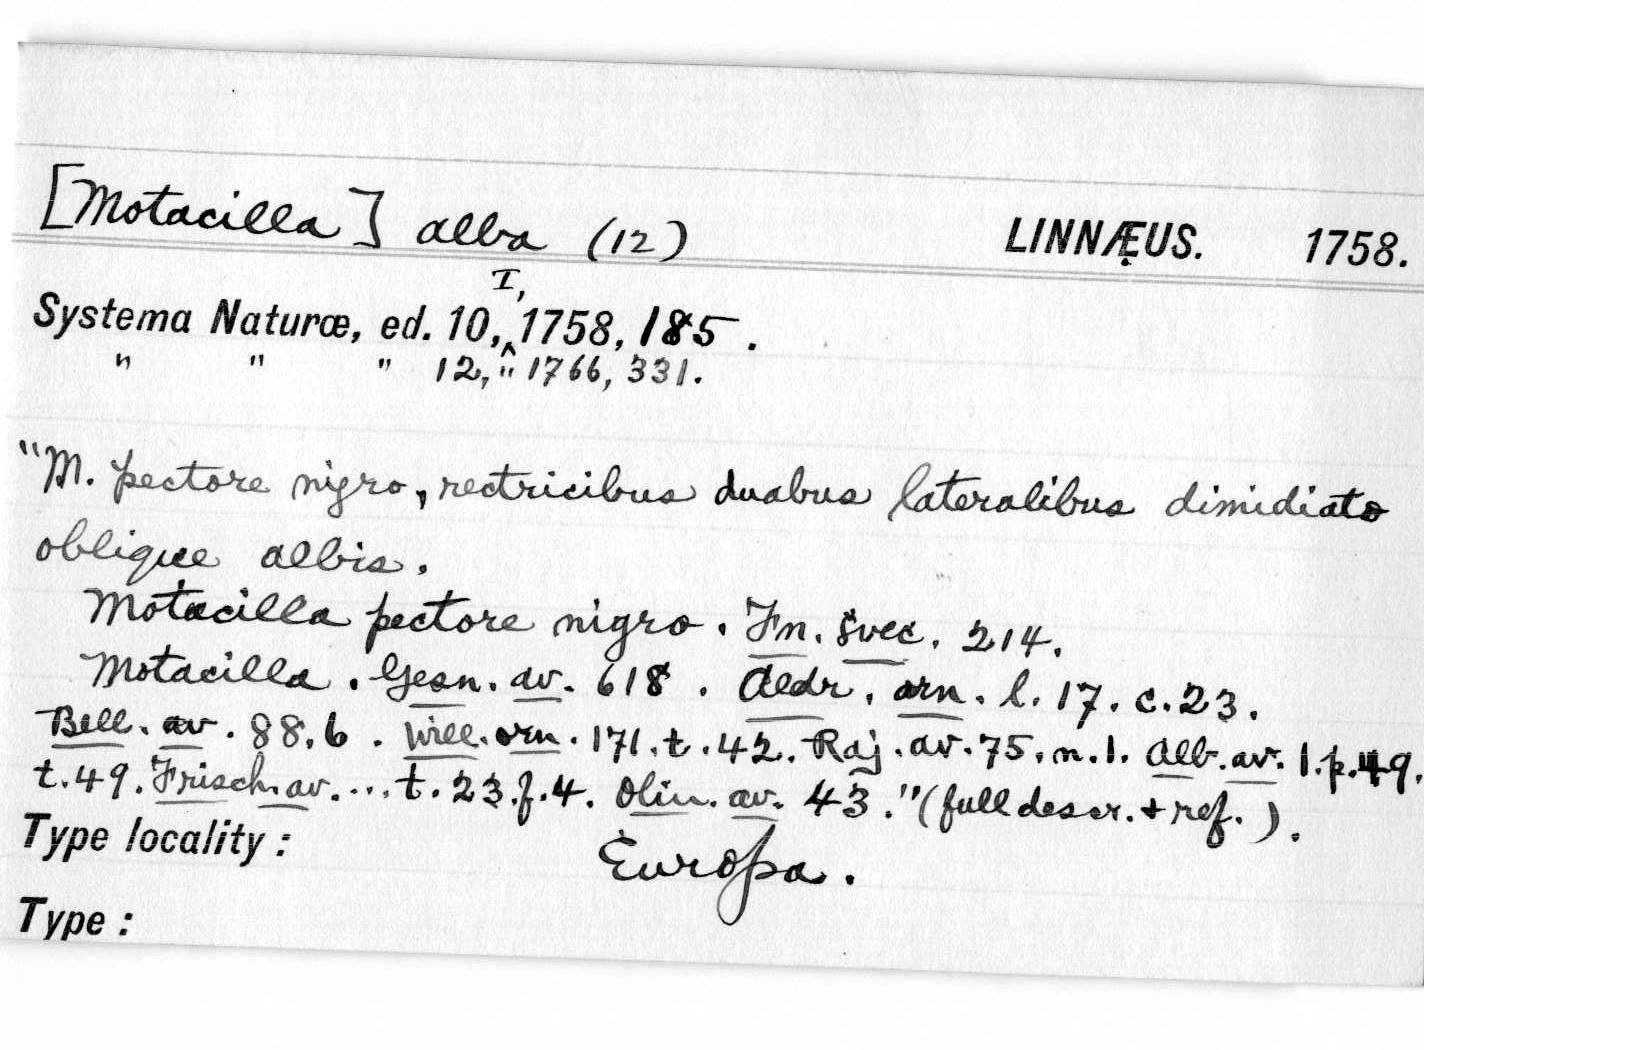 [Motacilla] alba (12) LINNÆUS. 1758.
I,
Systema Naturæ, ed. 10,^1758, 185.
" " " 12, " 1766, 331.
"M. pectore nigro, rectricibus duabus lateralibus dimidiato
oblique albis.
Motacilla pectore nigro. Fn. svec. 214.
Motacilla. Gesn. av. 618. Aldr. orn. l. 17. c. 23.
Bell. av. 88. b. Will. orn. 171. t. 42. Raj. av. 75. n. 1. Alb. av. 1. p. 49.
t. 49. Frisch. av. ... t. 23. f. 4. Olin. av. 43." (full descr. + ref.).
Type locality: Europa.
Type: